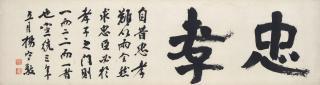 忠孝
自昔忠孝
難以兩全然
求忠臣必於
孝子之門則
一而二二而一者
也宣統三年
五月楊守敬